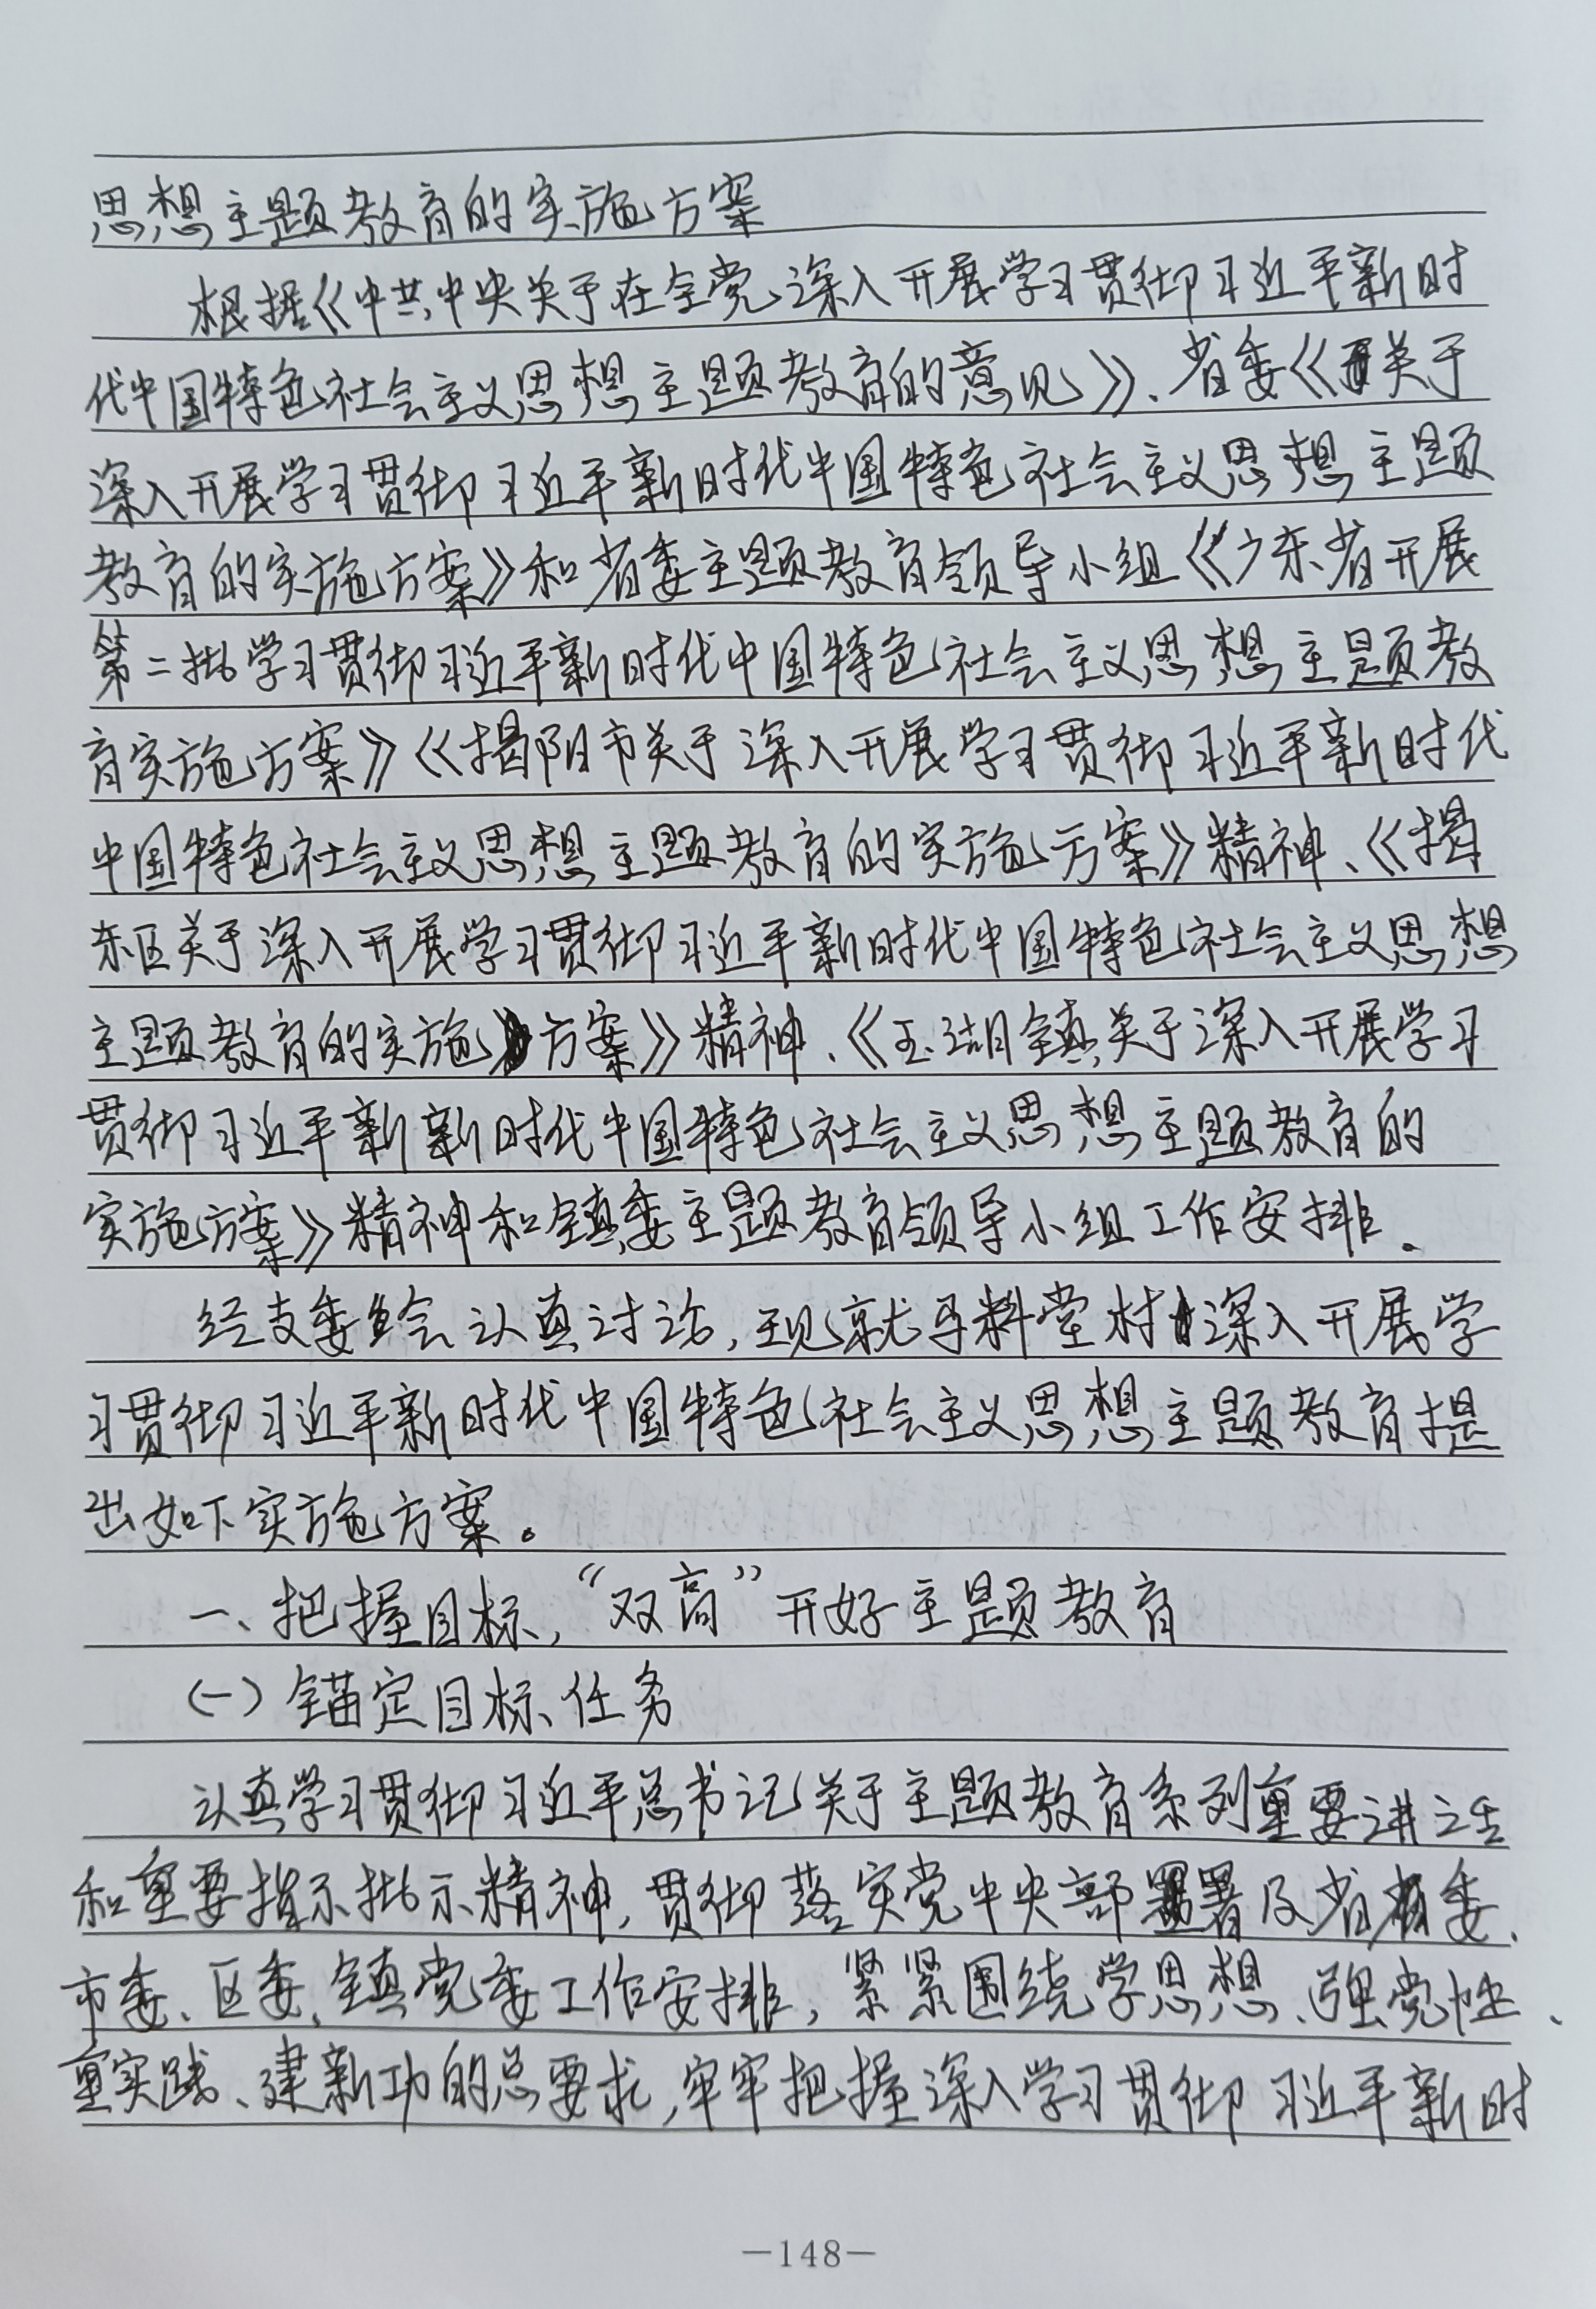 思想主题教育的实施方案
根据《中共中央关于在全党深入开展学习贯彻习近平新时
代中国特色社会主义思想主题教育的意见》、省委《关于
深入开展学习贯彻习近平新时代中国特色社会主义思想主题
教育的实施方案》和省委主题教育领导小组《广东省开展
第二批学习贯彻习近平新时代中国特色社会主义思想主题教
育实施方案》《揭阳市关于深入开展学习贯彻习近平新时代
中国特色社会主义思想主题教育的实施方案》精神、《揭
东区关于深入开展学习贯彻习近平新时代中国特色社会主义思想
主题教育的实施方案》精神、《玉湖镇关于深入开展学习
贯彻习近平新新时代中国特色社会主义思想主题教育的
实施方案》精神和镇委主题教育领导小组工作安排。
经支委会认真讨论，现就马料堂村深入开展学
习贯彻习近平新时代中国特色社会主义思想主题教育提
出如下实施方案。
一、把握目标，“双高”开好主题教育
(一) 锚定目标任务
认真学习贯彻习近平总书记关于主题教育系列重要讲话
和重要指示批示精神，贯彻落实党中央部署及省委、
市委、区委、镇党委工作安排，紧紧围绕学思想、强党性、
重实践、建新功的总要求，牢牢把握深入学习贯彻习近平新时
—148—